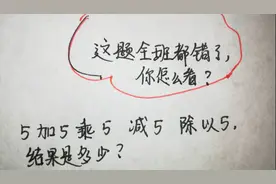 这题全班都错了,
你怎么看?
5加5乘5 减5 除以5,
结果是多少?